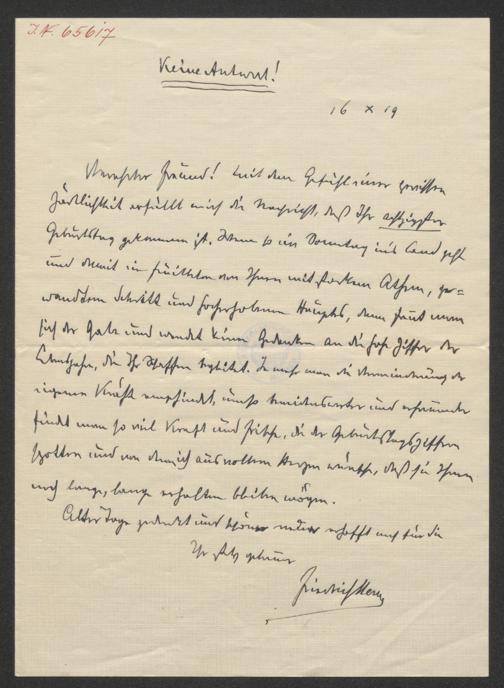 J.N. 65617
Keine Antwort!
16 X 19
Verehrter Freund! Mit dem Gefühl einer gewissen
Zärtlichkeit erfüllt mich die Nachricht, daß Ihr achtzigster
Geburtstag gekommen ist. Wenn so ein Sonntag ins Land geht
und damit in von Ihnen mit starkem Athem, ge-
wandtem Schritt und hocherhobenem Haupts, dann freut man
sich der Gabe und wendet keine Gedanken an die hohe Ziffer der
Lebensjahre, die Ihr Schaffen Je mehr man die Verminderung der
eigenen Kräfte empfindet, umso und
findet man so viel Kraft und Frische, die der Geburtstagsziffern
spotten und von denen ich aus vollem Herzen wünsche, daß sie Ihnen
noch lange, lange erhalten bleiben mögen.
Alter Tage gedenkt und neuer erhofft auch für Sie
Ihr stets getreuer
Friedrich